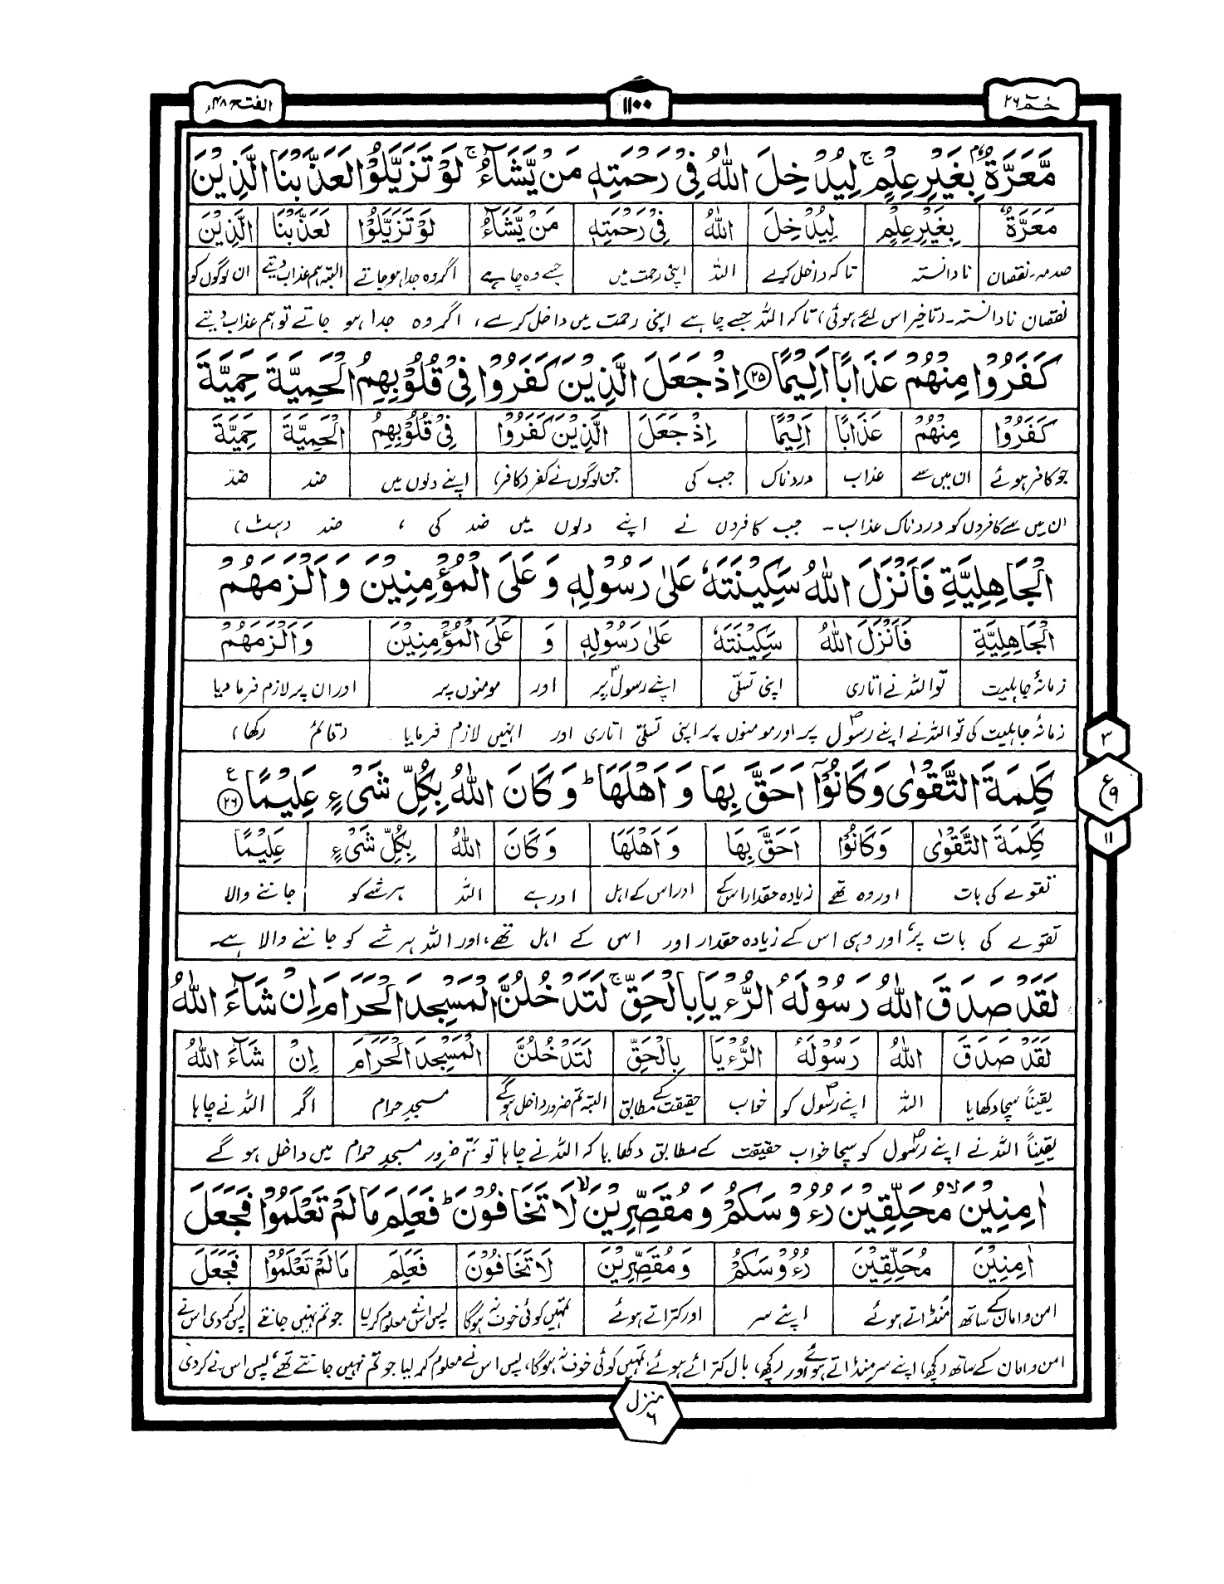 حٰمٓ ۲۶
۱۱۰۰
الفتح ۴۸
مَّعَرَّةٌۢ بِغَيْرِ عِلْمٍ ۚ لِيُدْخِلَ اللّٰهُ فِيْ رَحْمَتِهٖ مَنْ يَّشَآءُ ۚ لَوْ تَزَيَّلُوْا لَعَذَّبْنَا الَّذِيْنَ
مَعَرَّةٌ بِغَيْرِ عِلْمٍ لِيُدْخِلَ اللّٰهُ فِيْ رَحْمَتِهٖ مَنْ يَّشَآءُ لَوْ تَزَيَّلُوْا لَعَذَّبْنَا الَّذِيْنَ
صدمہ۔نقصان نادانستہ تاکہ داخل کرے اللہ اپنی رحمت میں جسے وہ چاہے اگر وہ جدا ہو جاتے البتہ ہم عذاب دیتے ان لوگوں کو
نقصان نادانستہ۔ (تاخیر اس لئے ہوئی) تاکہ اللہ جسے چاہے اپنی رحمت میں داخل کرے، اگر وہ جدا ہو جاتے تو ہم عذاب دیتے
كَفَرُوْا مِنْهُمْ عَذَابًا اَلِيْمًا ۲۵ اِذْ جَعَلَ الَّذِيْنَ كَفَرُوْا فِيْ قُلُوْبِهِمُ الْحَمِيَّةَ حَمِيَّةَ
كَفَرُوْا مِنْهُمْ عَذَابًا اَلِيْمًا اِذْ جَعَلَ الَّذِيْنَ كَفَرُوْا فِيْ قُلُوْبِهِمُ الْحَمِيَّةَ حَمِيَّةَ
جو کافر ہوئے ان میں سے عذاب دردناک جب کی جن لوگوں نے کفر کیا (کافر) اپنے دلوں میں ضد ضد
ان میں سے کافروں کو دردناک عذاب۔ جب کافروں نے اپنے دلوں میں ضد کی ، ضد (ہٹ)
الْجَاهِلِيَّةِ فَاَنْزَلَ اللّٰهُ سَكِيْنَتَهٗ عَلٰى رَسُوْلِهٖ وَ عَلَى الْمُؤْمِنِيْنَ وَ اَلْزَمَهُمْ
الْجَاهِلِيَّةِ فَاَنْزَلَ اللّٰهُ سَكِيْنَتَهٗ عَلٰى رَسُوْلِهٖ وَ عَلَى الْمُؤْمِنِيْنَ وَاَلْزَمَهُمْ
زمانۂ جاہلیت تو اللہ نے اتاری اپنی تسلّی اپنے رسولؐ پر اور مومنوں پر اور ان پر لازم فرما دیا
زمانۂ جاہلیت کی تو اللہ نے اپنے رسولؐ پر اور مومنوں پر اپنی تسلّی اتاری اور انہیں لازم فرمایا (قائم رکھا)
كَلِمَةَ التَّقْوٰى وَ كَانُوْٓا اَحَقَّ بِهَا وَ اَهْلَهَا ؕ وَ كَانَ اللّٰهُ بِكُلِّ شَيْءٍ عَلِيْمًا ۲۶ ع
كَلِمَةَ التَّقْوٰى وَكَانُوْٓا اَحَقَّ بِهَا وَ اَهْلَهَا وَكَانَ اللّٰهُ بِكُلِّ شَيْءٍ عَلِيْمًا
تقوے کی بات اور وہ تھے زیادہ حقدار اس کے اور اس کے اہل اور ہے اللہ ہر شے کو جاننے والا
تقوے کی بات پر، اور وہی اس کے زیادہ حقدار اور اس کے اہل تھے، اور اللہ ہر شے کو جاننے والا ہے۔
۳
ع ۹
۱۱
لَقَدْ صَدَقَ اللّٰهُ رَسُوْلَهُ الرُّءْيَا بِالْحَقِّ ۚ لَتَدْخُلُنَّ الْمَسْجِدَ الْحَرَامَ اِنْ شَآءَ اللّٰهُ
لَقَدْ صَدَقَ اللّٰهُ رَسُوْلَهُ الرُّءْيَا بِالْحَقِّ لَتَدْخُلُنَّ الْمَسْجِدَ الْحَرَامَ اِنْ شَآءَ اللّٰهُ
یقیناً سچا دکھایا اللہ اپنے رسولؐ کو خواب حقیقت کے مطابق البتہ تم ضرور داخل ہوگے مسجدِ حرام اگر اللہ نے چاہا
یقیناً اللہ نے اپنے رسولؐ کو سچا خواب حقیقت کے مطابق دکھایا کہ اللہ نے چاہا تو تم ضرور مسجدِ حرام میں داخل ہو گے
اٰمِنِيْنَ ۙ مُحَلِّقِيْنَ رُءُوْسَكُمْ وَ مُقَصِّرِيْنَ ۙ لَا تَخَافُوْنَ ؕ فَعَلِمَ مَا لَمْ تَعْلَمُوْا فَجَعَلَ
اٰمِنِيْنَ مُحَلِّقِيْنَ رُءُوْسَكُمْ وَ مُقَصِّرِيْنَ لَا تَخَافُوْنَ فَعَلِمَ مَا لَمْ تَعْلَمُوْا فَجَعَلَ
امن و امان کے ساتھ مُنڈاتے ہوئے اپنے سر اور کتراتے ہوئے تمہیں کوئی خوف نہ ہوگا پس اس نے معلوم کر لیا جو تم نہیں جانتے پس کر دی اس نے
امن و امان کے ساتھ اپنے سر منڈاتے ہوئے اور بال کتراتے ہوئے، تمہیں کوئی خوف نہ ہوگا، پس اس نے معلوم کر لیا جو تم نہیں جانتے تھے، پس اس نے کر دی
منزل ۶